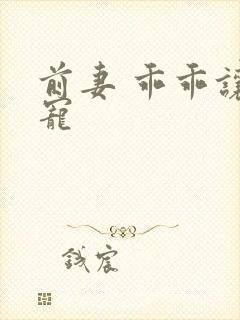 前妻 乖乖讓
寵
錢宸